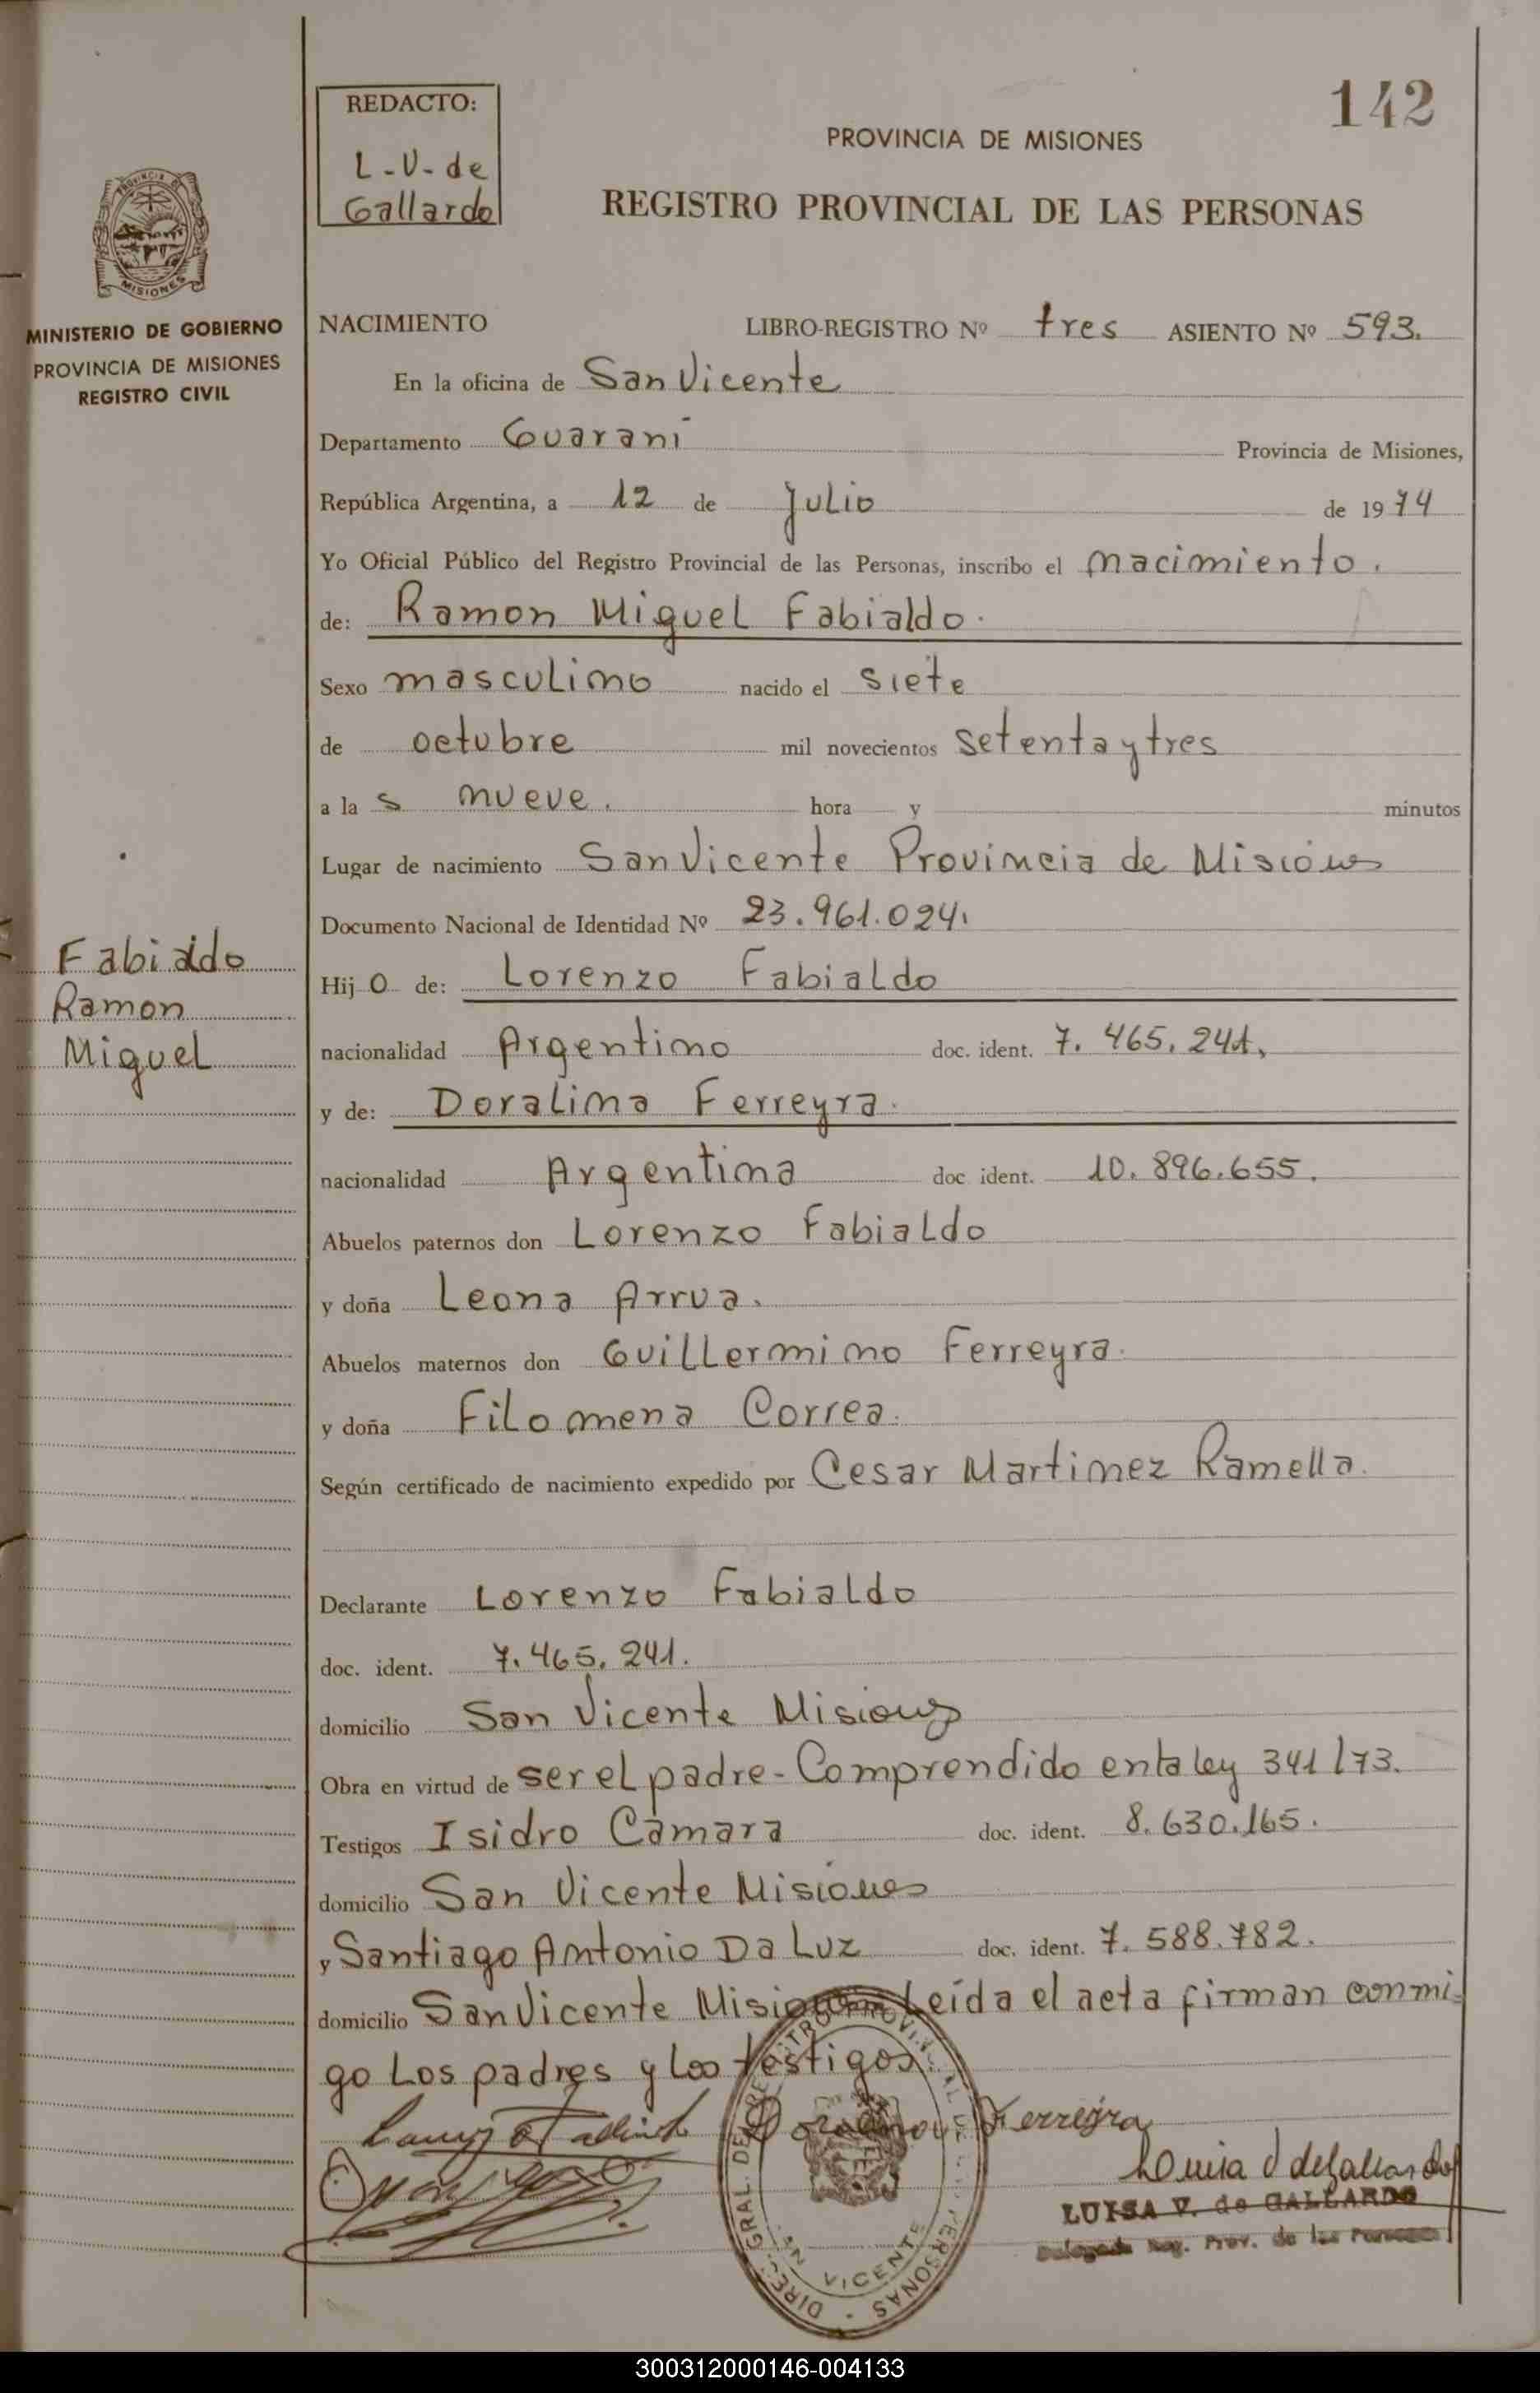 REDACTO:
L-V-de
Gallardo
142
PROVINCIA DE MISIONES
REGISTRO PROVINCIAL DE LAS PERSONAS
MISIONES
MINISTERIO DE GOBIERNO
PROVINCIA DE MISIONES
REGISTRO CIVIL
NACIMIENTO LIBRO-REGISTRO Nº tres ASIENTO Nº 593.
En la oficina de San Vicente
Departamento Guarani Provincia de Misiones,
República Argentina, a 12 de Julio de 1974
Yo Oficial Público del Registro Provincial de las Personas, inscribo el nacimiento.
de: Ramon Miguel Fabialdo.
Sexo masculino nacido el siete
de octubre mil novecientos setenta y tres
a la s nueve. hora y minutos
Lugar de nacimiento San Vicente Provincia de Misiones
Documento Nacional de Identidad Nº 23.961.024.
Fabialdo
Ramon
Miguel
Hij o de: Lorenzo Fabialdo
nacionalidad Argentino doc. ident. 7.465.241.
y de: Doralina Ferreyra.
nacionalidad Argentina doc ident. 10.896.655.
Abuelos paternos don Lorenzo Fabialdo
y doña Leona Arrua.
Abuelos maternos don Guillermino Ferreyra.
y doña Filomena Correa.
Según certificado de nacimiento expedido por Cesar Martinez Ramella.
Declarante Lorenzo Fabialdo
doc. ident. 7.465.241.
domicilio San Vicente Misiones
Obra en virtud de ser el padre - Comprendido en la ley 341/73.
Testigos Isidro Camara doc. ident. 8.630.165.
domicilio San Vicente Misiones
y Santiago Antonio Da Luz doc. ident. 7.588.782.
domicilio San Vicente Misiones Leída el acta firman conmi-
go Los padres y los testigos.
Ferreyra
Luisa V de Gallardo
LUISA V. de GALLARDO
Delegada Reg. Prov. de las Personas
DIREC. GRAL. DEL REGISTRO PROVINCIAL DE LAS PERSONAS
SAN VICENTE
300312000146-004133